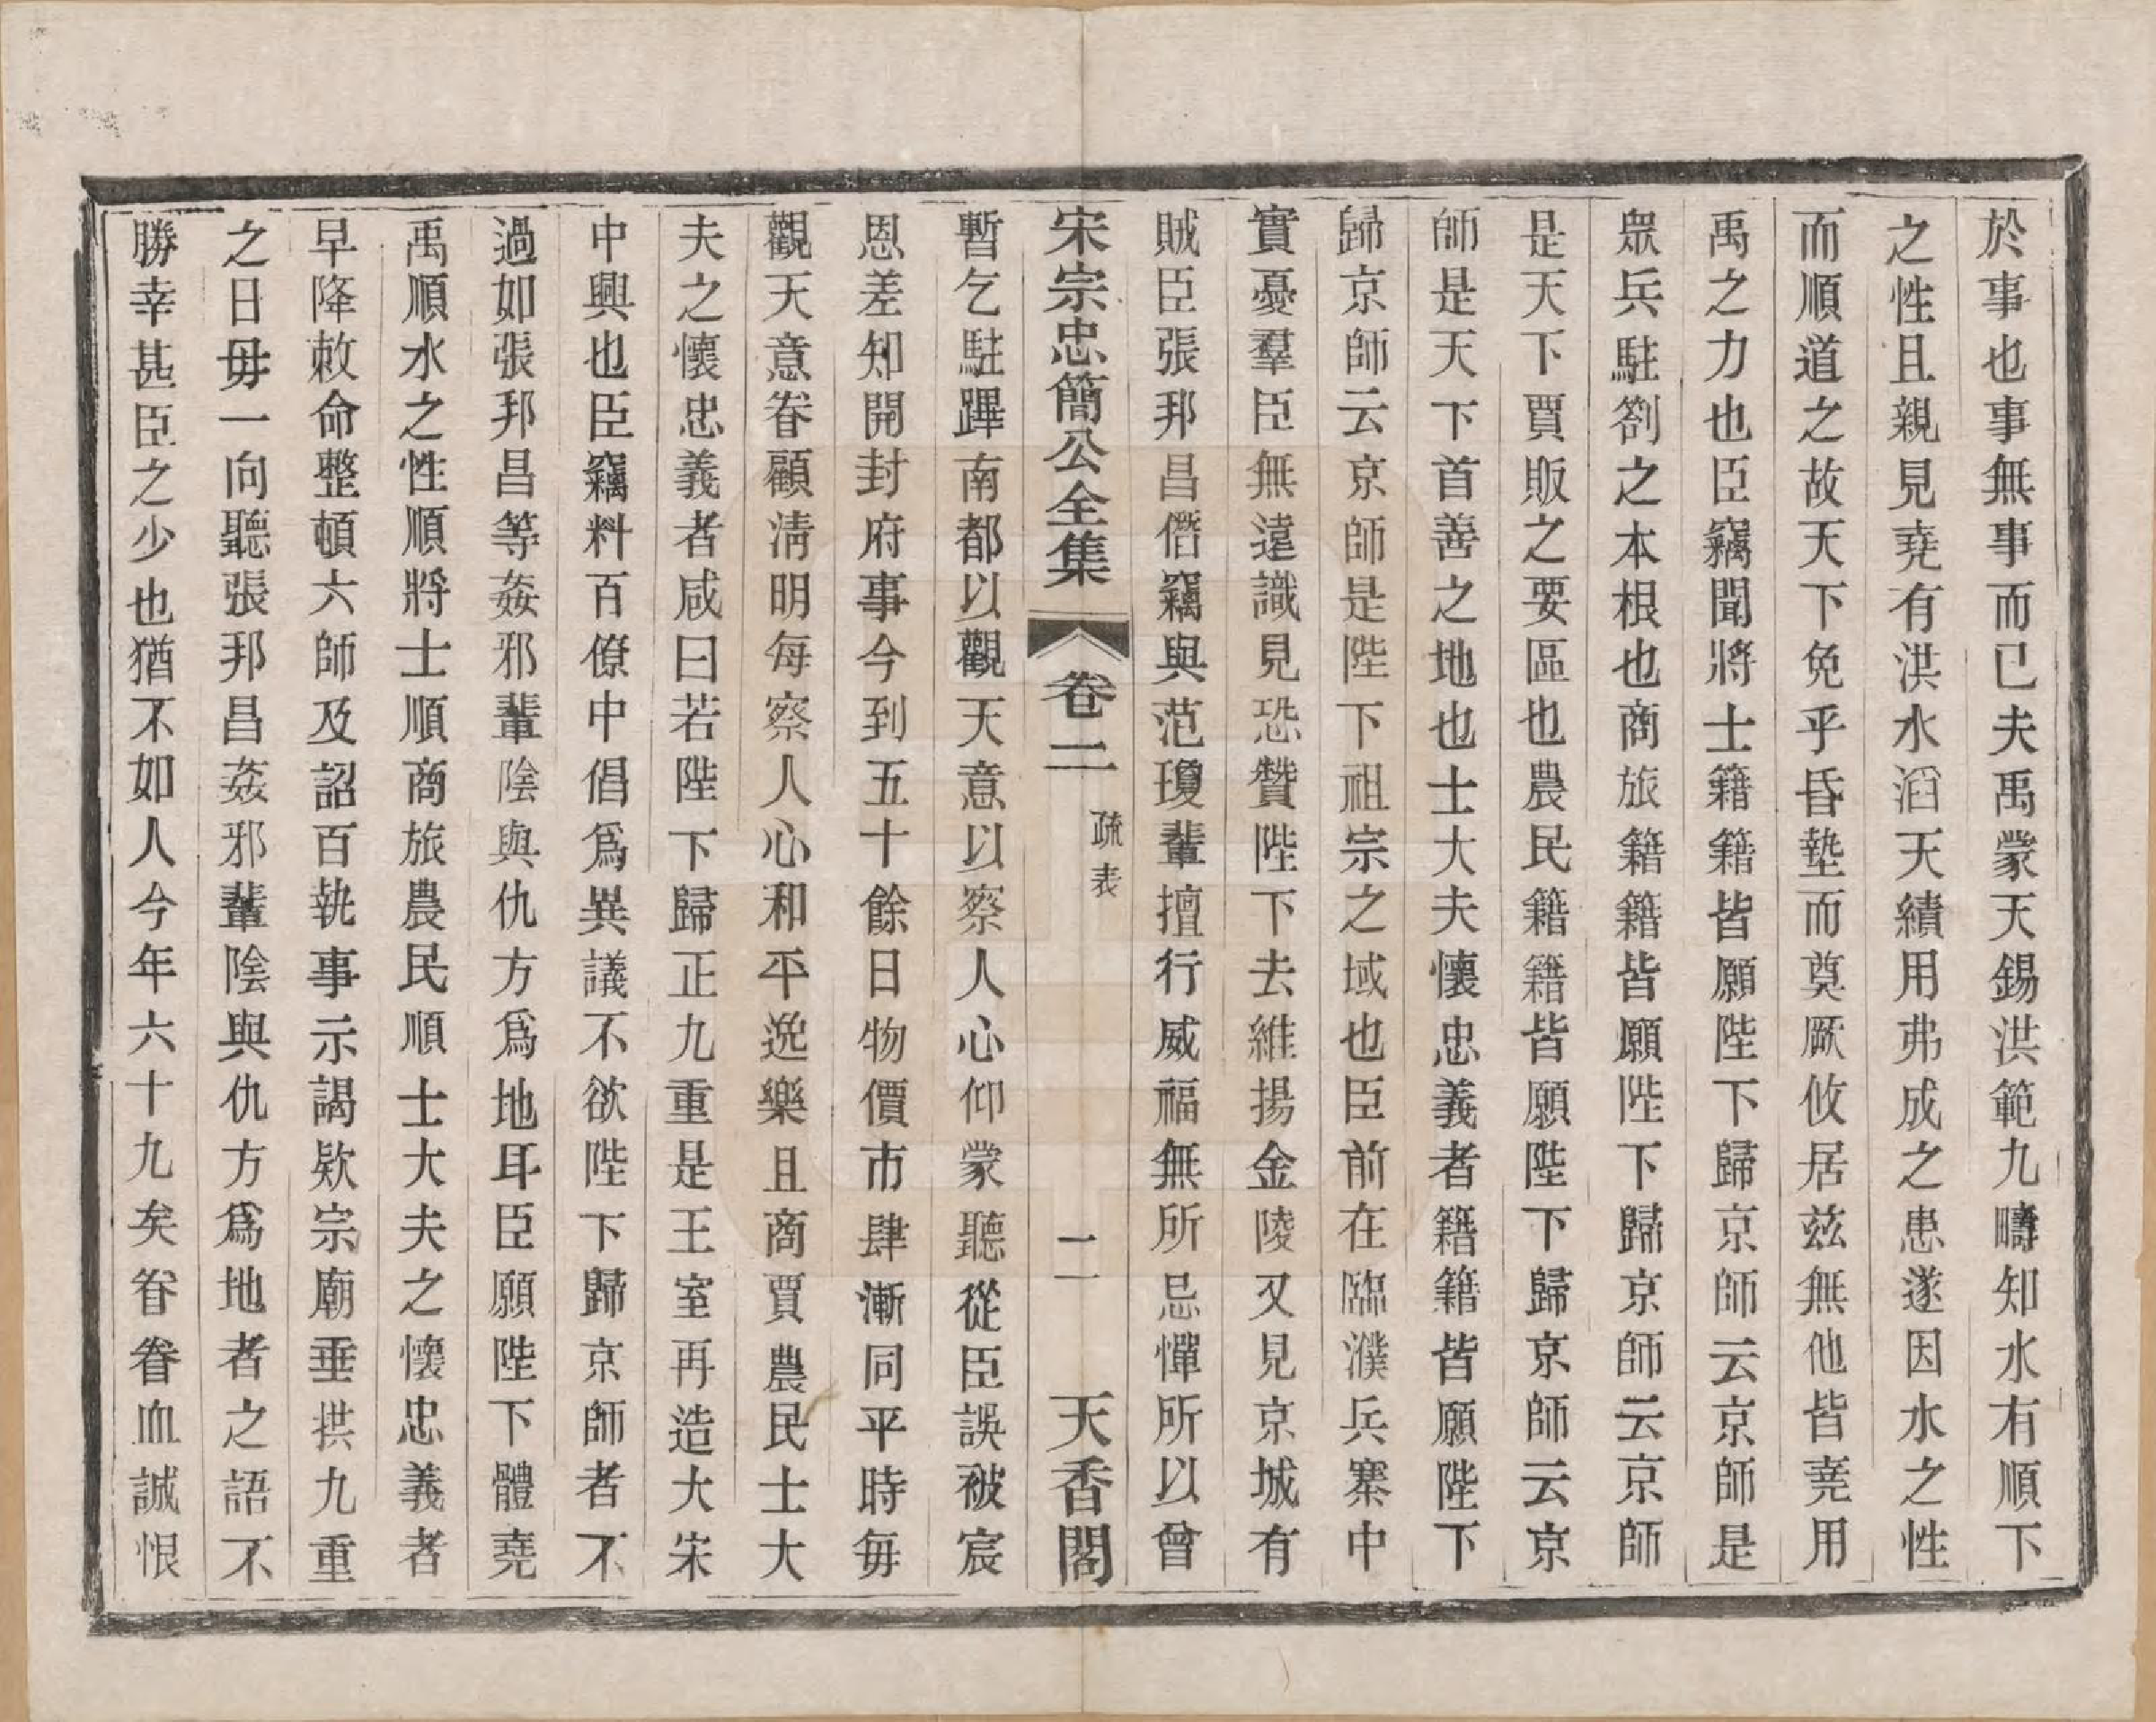 於事也事無事而已夫禹蒙天錫洪範九疇知水有順下
之性且親見堯有洪水滔天績用弗成之患遂因水之性
而順道之故天下免乎昏墊而奠厥攸居兹無他皆堯用
禹之力也臣竊聞將士籍籍皆願陛下歸京師云京師是
衆兵駐劄之本根也商旅籍籍皆願陛下歸京師云京師
是天下賈販之要區也農民籍籍皆願陛下歸京師云京
師是天下首善之地也士大夫懷忠義者籍籍皆願陛下
歸京師云京師是陛下祖宗之域也臣前在臨濮兵寨中
實憂羣臣無遠識見恐贊陛下去維揚金陵又見京城有
賊臣張邦昌僭竊與范瓊輩擅行威福無所忌憚所以曾
宋宗忠簡公全集 卷二 疏表 二 天香閣
暫乞駐蹕南都以觀天意以察人心仰蒙聽從臣誤被宸
恩差知開封府事今到五十餘日物價市肆漸同平時每
觀天意眷顧淸明每察人心和平逸樂且商賈農民士大
夫之懷忠義者咸曰若陛下歸正九重是王室再造大宋
中興也臣竊料百僚中倡爲異議不欲陛下歸京師者不
過如張邦昌等姦邪輩陰與仇方爲地耳臣願陛下體堯
禹順水之性順將士順商旅農民順士大夫之懷忠義者
早降敕命整頓六師及詔百執事示謁欵宗廟垂拱九重
之日毋一向聽張邦昌姦邪輩陰與仇方爲地者之語不
勝幸甚臣之少也猶不如人今年六十九矣眷眷血誠恨